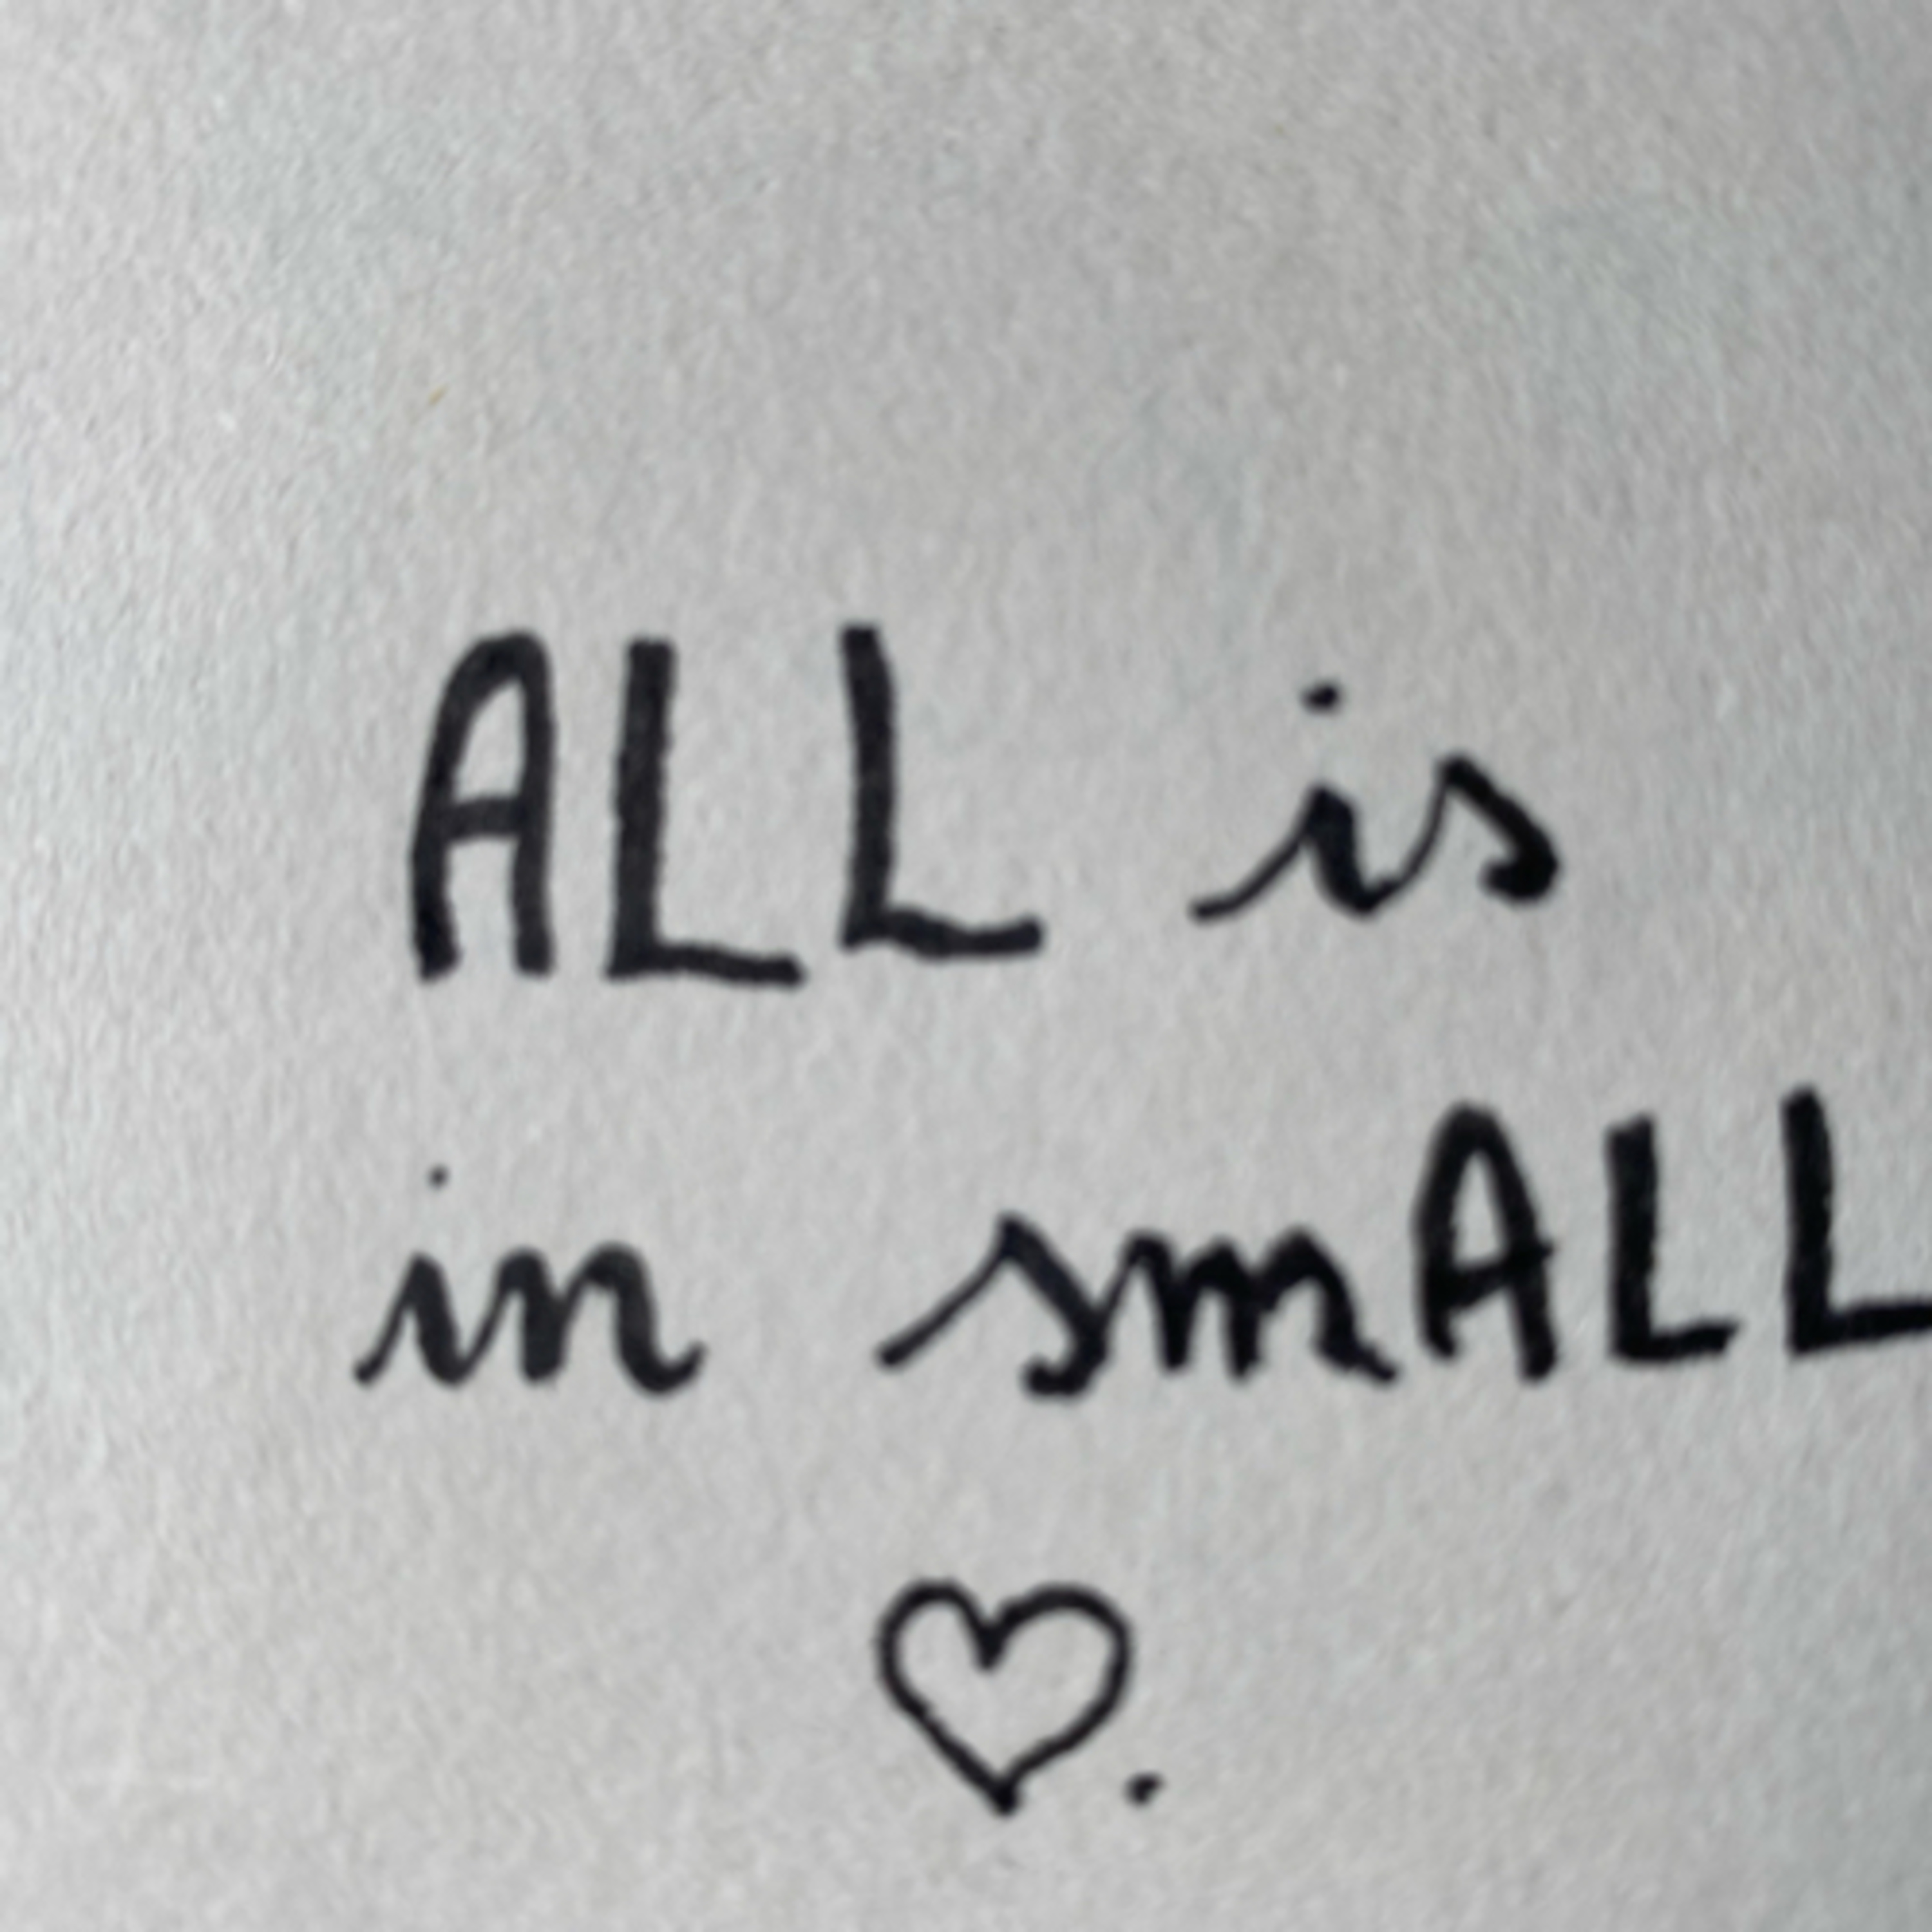 ALL is
in smALL
♡.